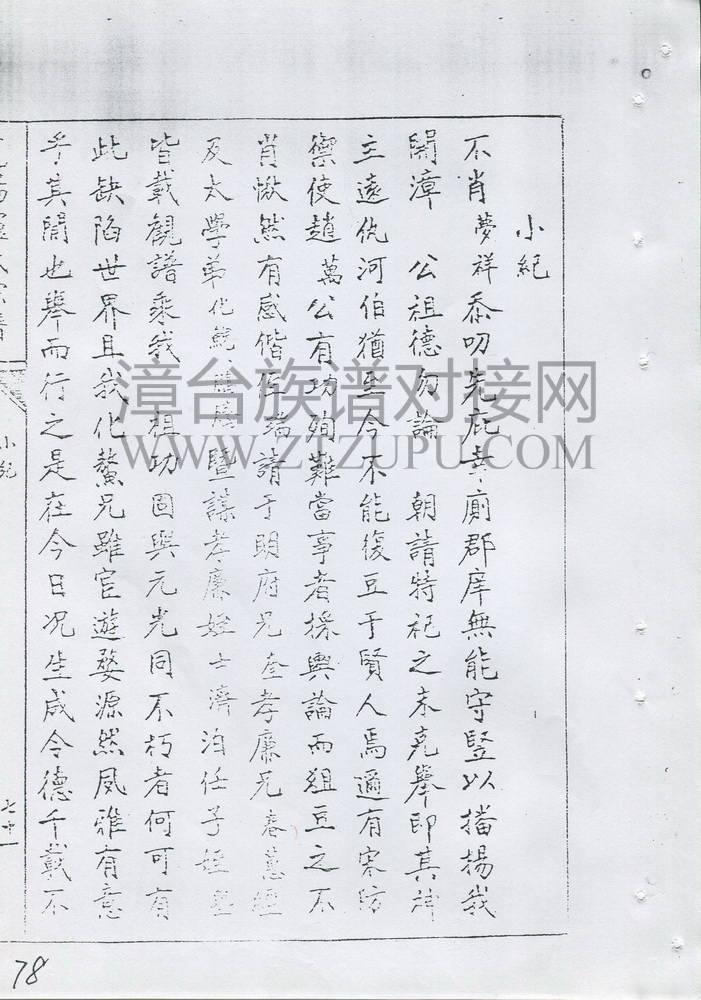 小紀
不肖夢祥忝叨先庇幸廁郡庠無能守豎以播揚我
開漳 公祖德勿論 朝請特祀之未克舉即其神
主遠仇河伯猶至今不能復豆于賢人焉適有寨防
禦使趙萬公有功殉難當事者採輿論而俎豆之不
肖愀然有感偕侄瑞請于明府兄奎孝廉兄春蕙
及太學弟化鯤 暨謀孝廉姪士濟洎任子姪
皆載觀譜乘我 祖功 固與元光同不朽者何可有
此缺陷世界且我化鰲兄雖宦遊婺源然風雅有意
乎其間也舉而行之是在今日况生咸令德千載不
小紀
七十一
78
漳台族谱对接网
WWW.ZTZUPU.COM